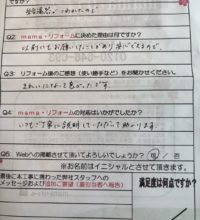 給湯器がこわれたので
Q2 mama・リフォームに決めた理由は何ですか？
以前にもお願いしたことがあり
Q3 リフォーム後のご感想（使い勝手など）をお聞かせください。
きれいになって
Q4 mama・リフォームの対応はいかがでしたか？
いつもご丁寧に説明していただいて助かります。
Q5 Webへの掲載させて頂いてよろしいでしょうか？ 可 / 否
※お名前はイニシャルとさせて頂きます。
最後に本工事に携わった弊社スタッフへの
メッセージおよび追加ご要望
満足度は何点ですか？